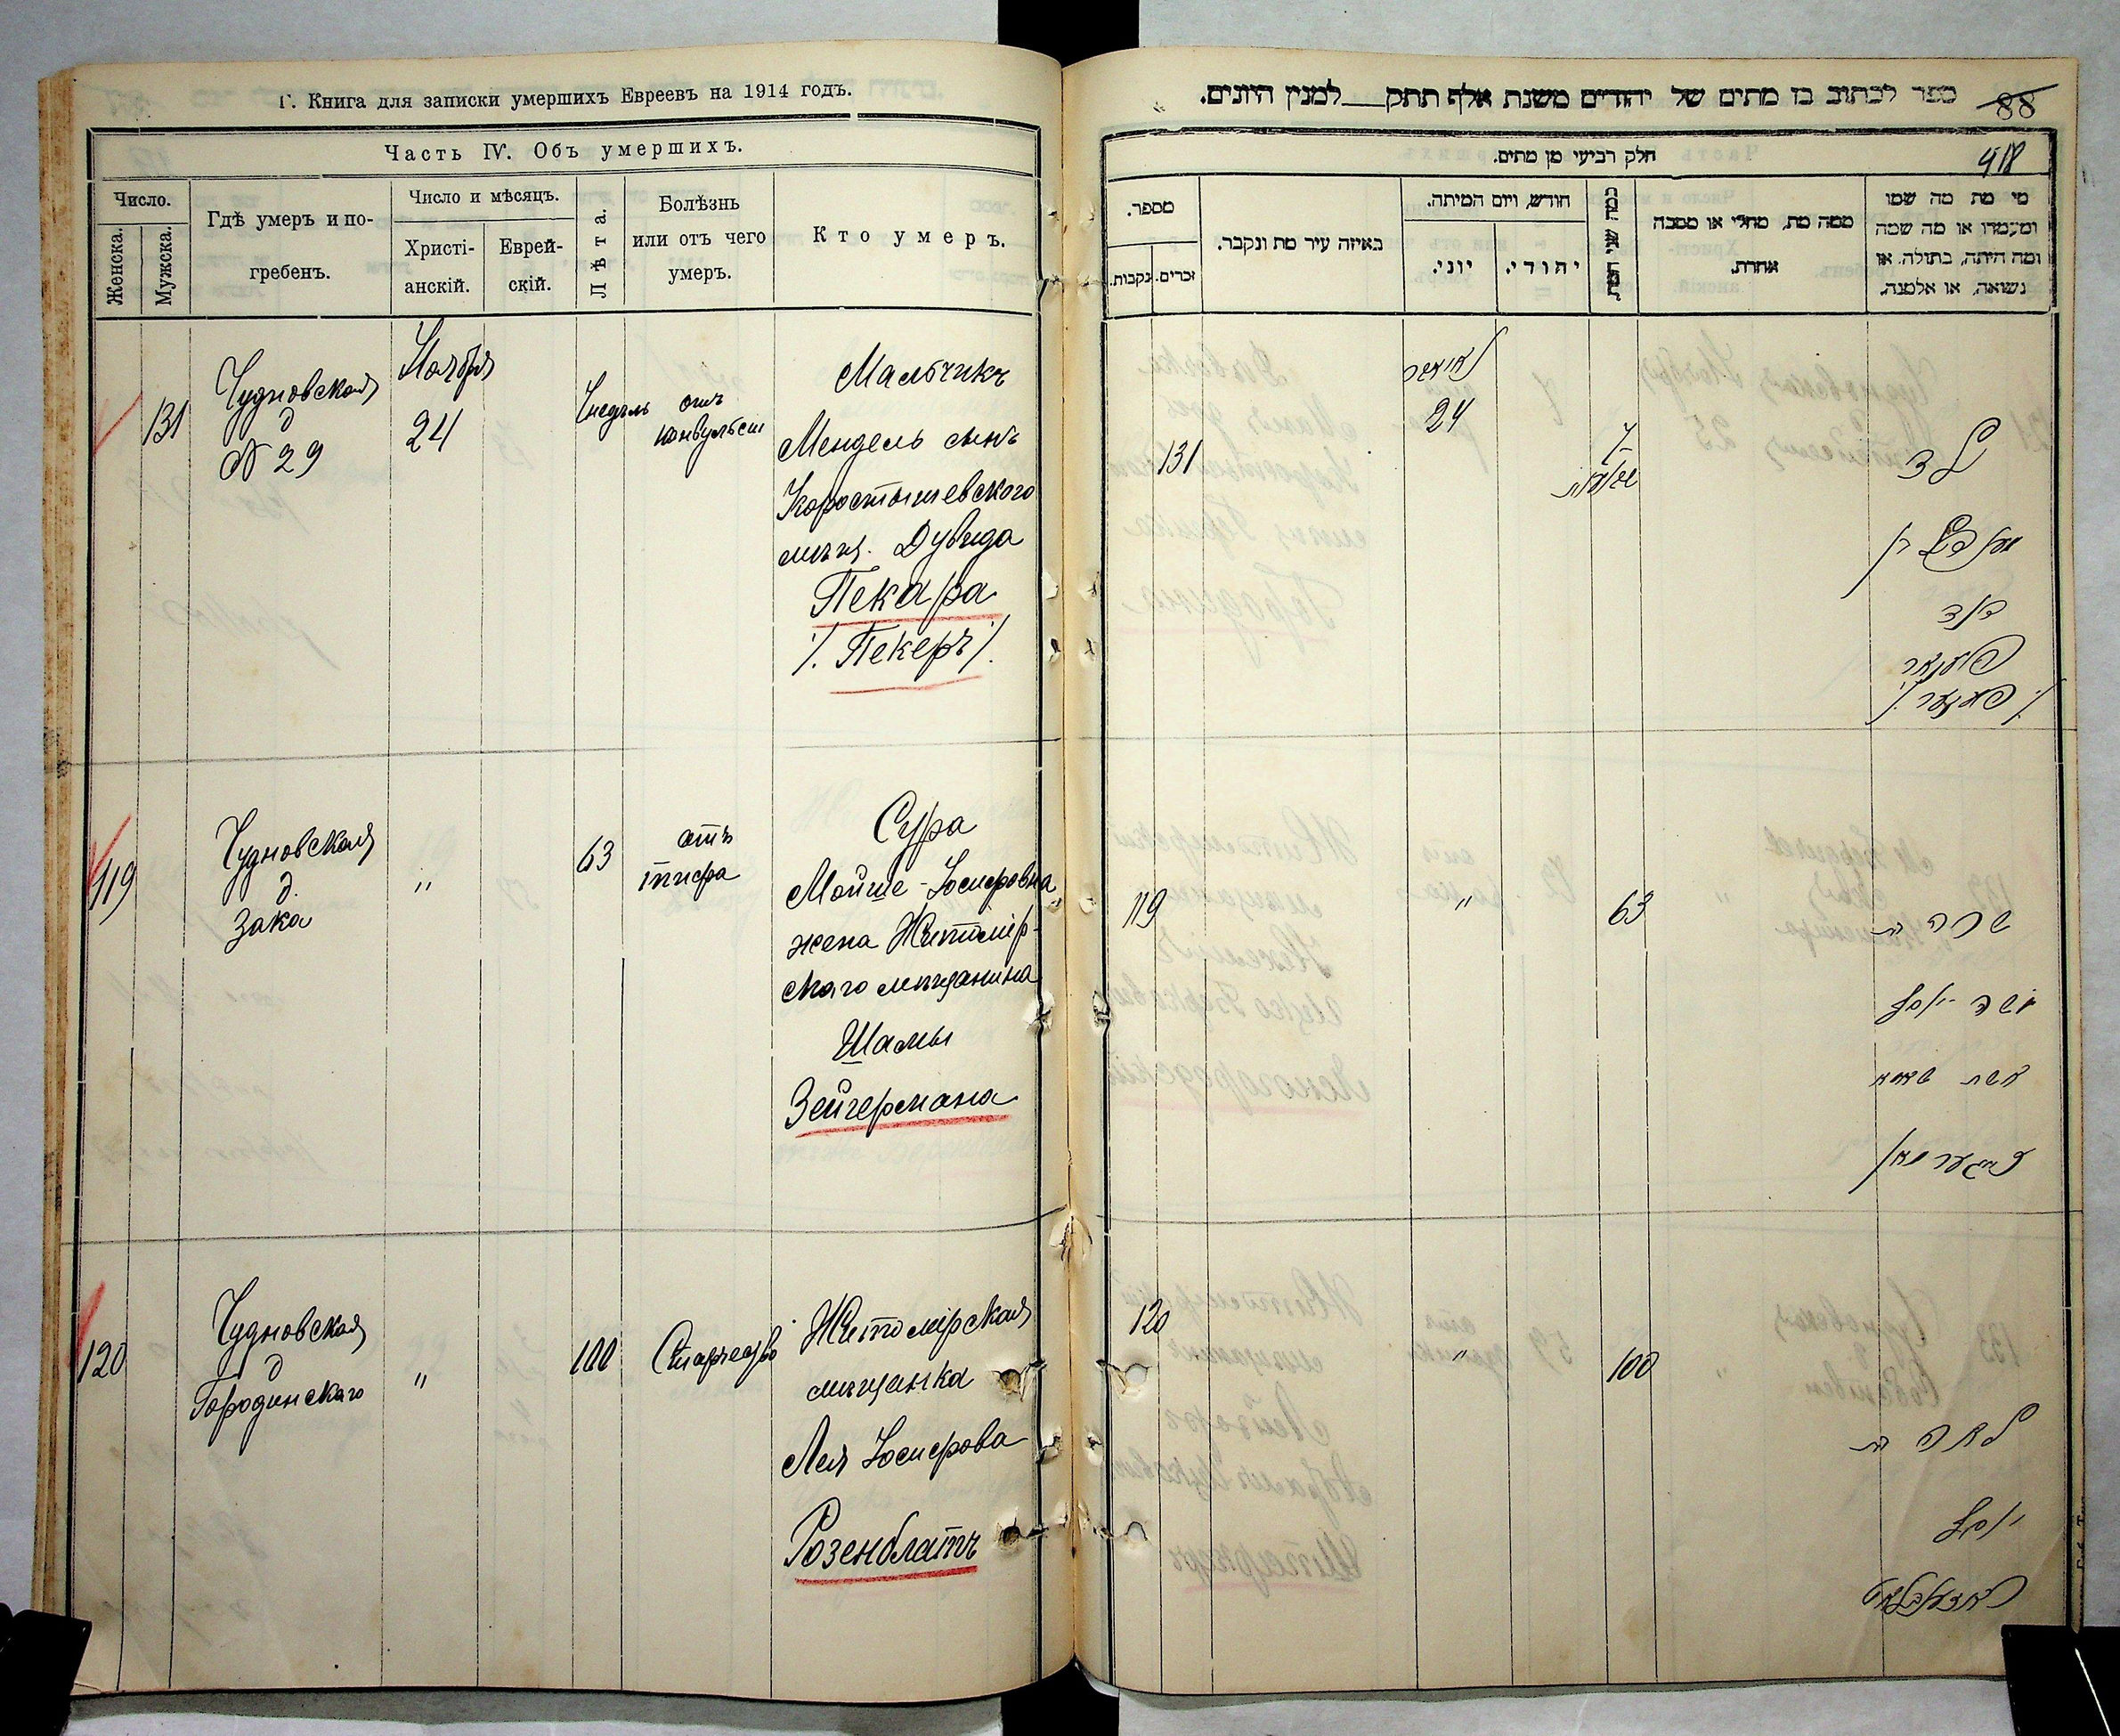 Г. Книга для записки умершихъ Евреевъ на 1914 годъ.
Часть IV. Объ умершихъ.
Число.
Женска.
Мужска.
Гдѣ умеръ и по-
гребенъ.
Число и мѣсяцъ.
Христі-
анскій.
Еврей-
скій.
Лѣта.
Болѣзнь
или отъ чего
умеръ.
Кто умеръ.
131
Чудновская
д
№ 29
Ноября
24
7 недѣль
отъ
Мальчикъ
Мендель сынъ
Коростышевского
мѣщ. Дувида
Пекара
/. Пекеръ /.
119
Чудновская
д.
Зака
"
63
отъ
тифа
Сура
Мойше-Іосифовна
жена Житомір-
скаго мѣщанина
Шамы
Зейгермана
120
Чудновская
д
Городинскаго
"
100
Житомірская
мѣщанка
Лея Іосифова
Розенблатъ
ספר לכתוב בו מתים של יהודים משנת אלף תתק למנין היונים.
88
418
חלק רביעי מן מתים.
מספר.
נקבות.
זכרים.
באיזה עיר מת ונקבר.
חודש, ויום המיתה.
יוני.
יהודי.
כמה שני המת
ממה מת, מחלי או מסבה
אחרת.
מי מת מה שמו
ומעמדו או מה שמה
ומה היתה, בתולה. או
נשואה, או אלמנה.
131
24
7
ילד
מענדל בן
דוד
פעקאר
/. פעקער /.
119
"
63
שרה בת
משה יוסף
אשת שאמא
זייגערמאן
120
"
100
לאה בת
יוסף
ראזענבלאט